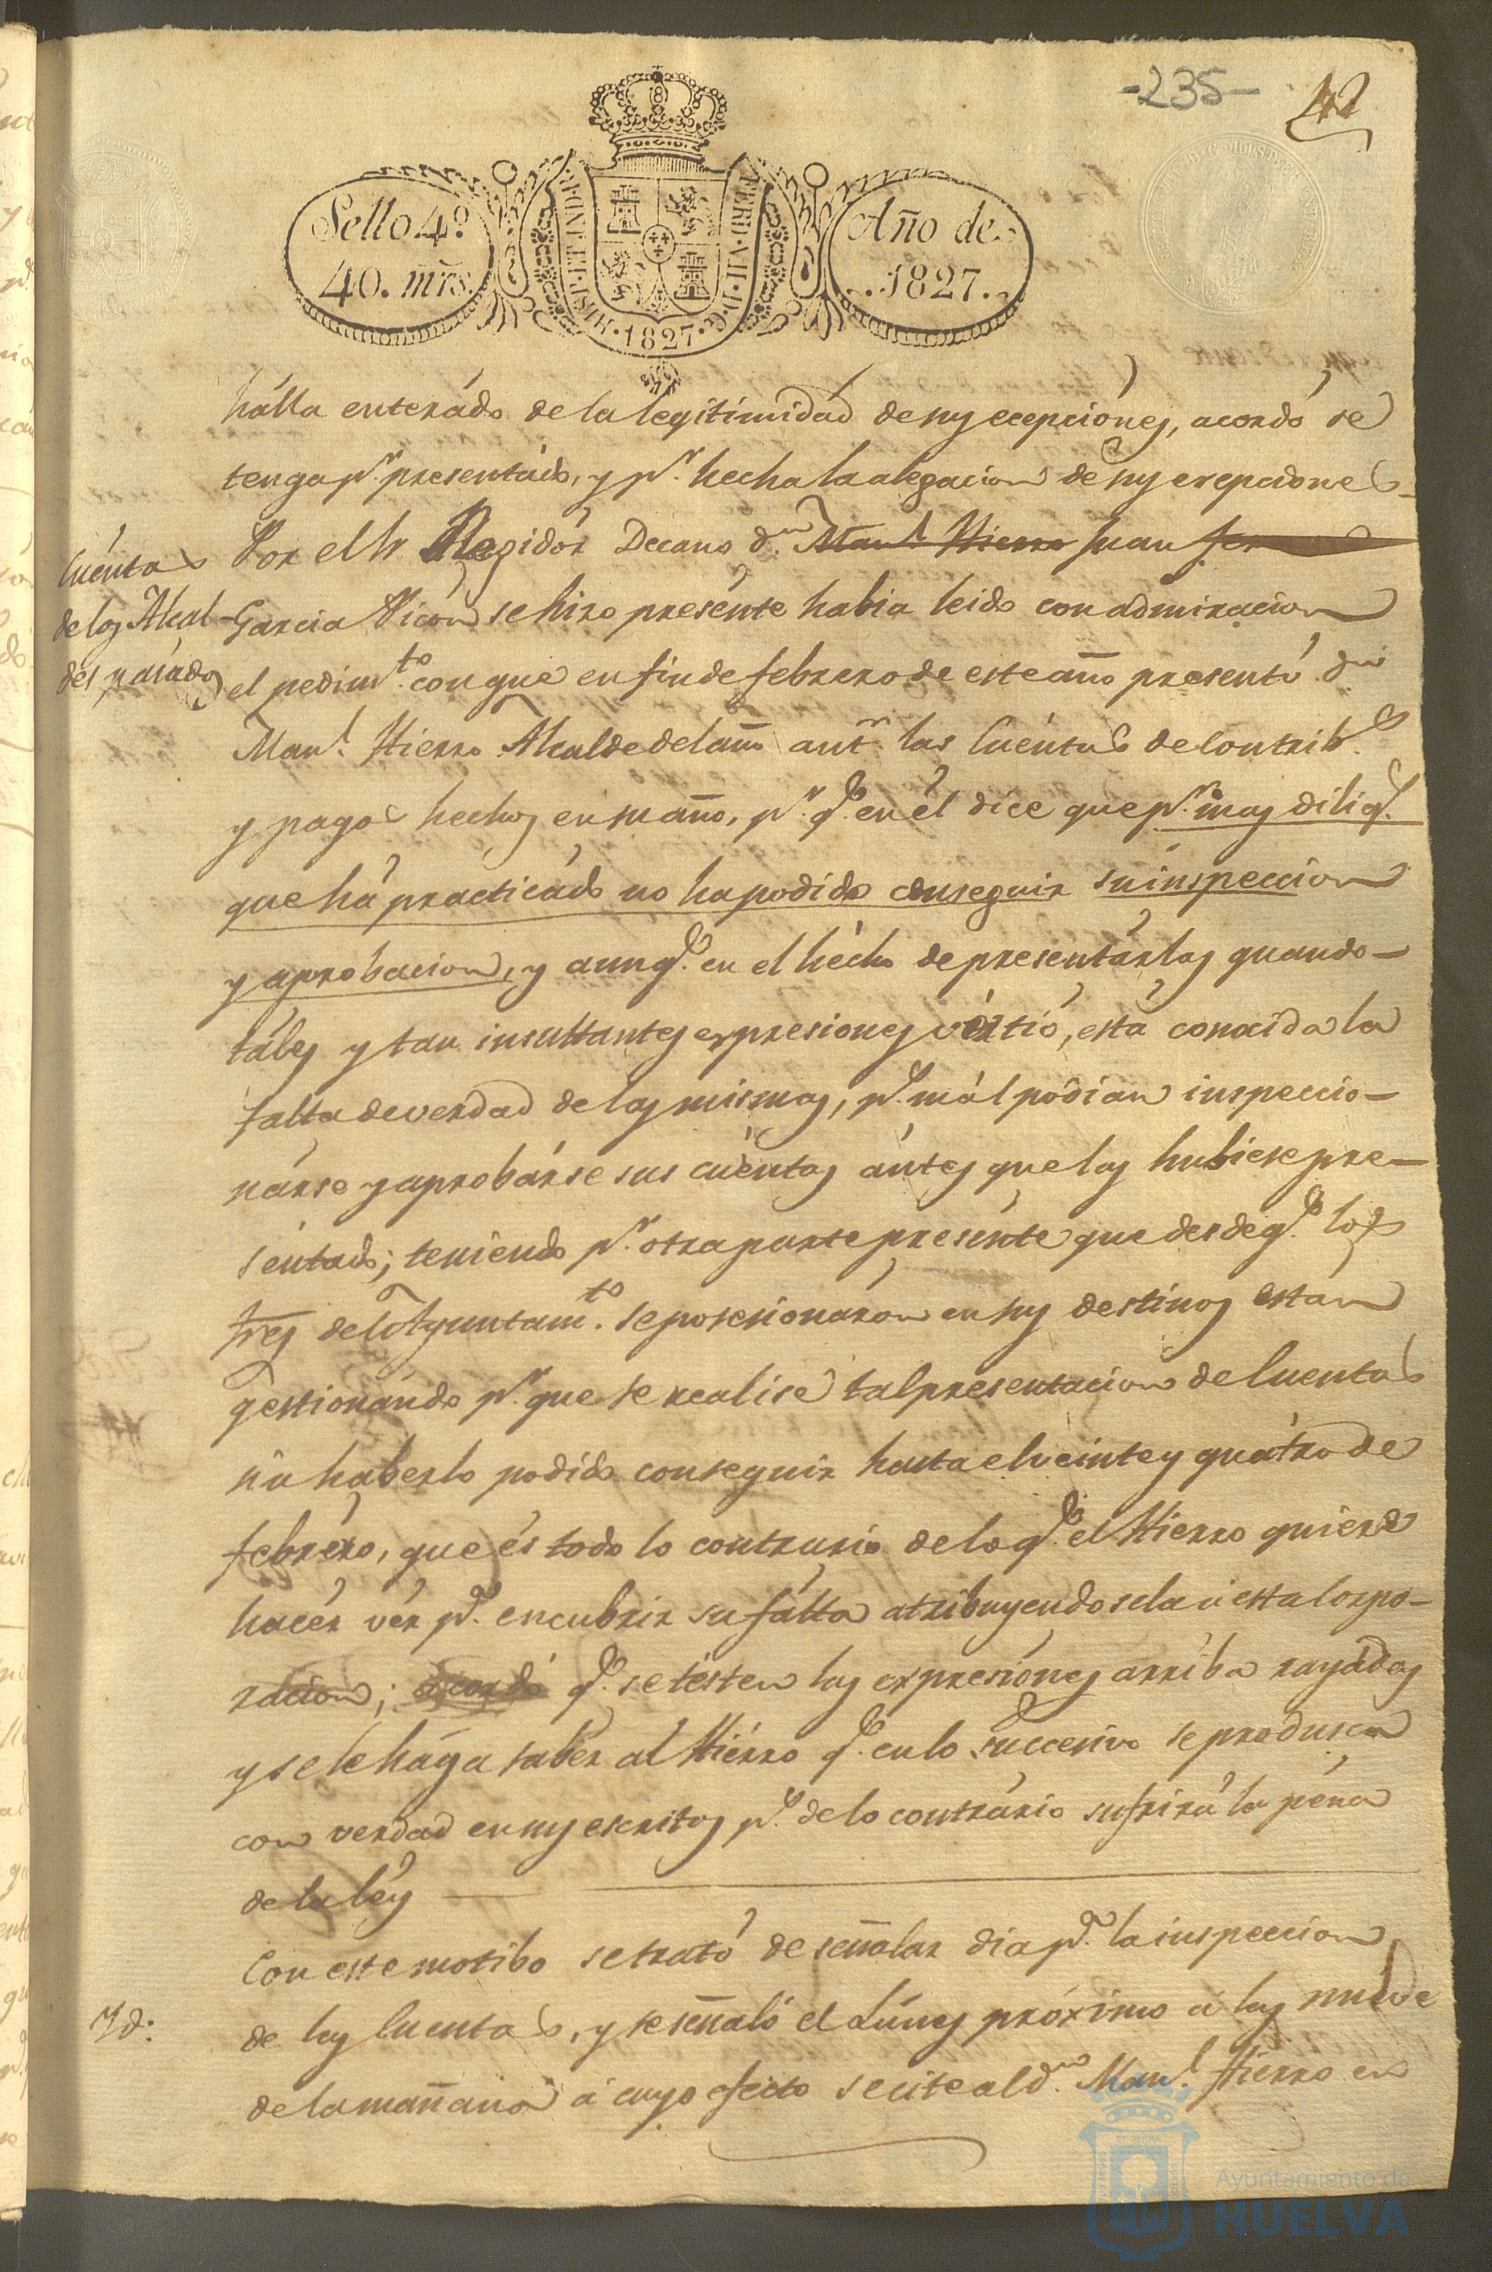 -235-
42
Sello 4º.
40. mrs.
HISP. ET IND. R.
FERD. VII. D. G.
1827.
Año de
1827.
hálla enterádo de la legitimidád de sus ecepciónes, acordó se
tenga pr. presentádo, y pr. hecha la alegacion de sus excepciones
Cuéntas
de los Alcal-
des pasados
Por el Sr. Regidór Decano dn. Manl. Hierro Juan
Garcia Vicon se hizo presénte habia leido con admiracion
el pedimto. con que en fin de febrero de este año presentó dn.
Manl. Hierro Alcalde del año antr. las Cuéntas de contribs.
y pagos hechos en su año, pr. qe. en él dice que pr. mas diligs.
que há practicádo no ha podido conseguir su inspeccion
y aprobacion, y aunqe. en el hécho de presentárlas quando
táles y tan insultantes expresiones virtió, está conocida la
falta de verdad de las mismas, ps. mál podian inspeccio-
nárse y aprobárse sus cuéntas ántes que las hubiese pre-
séntado; teniendo pr. otra parte presénte que desde qe. los
Sres. del Ayuntamto. se posesionarón en sus destinos están
gestionándo pa. que se realise tal presentacion de Cuentas
sin haberlo podido conseguir hasta el veinte y quátro de
febréro, que és todo lo contrario de lo qe. el Hierro quiere
hacér vér pa. encubrir su fálta atribuyendosela a esta Corpo-
racion; acordó qe. se tésten las expresiónes arriba rayádas
y se le hága sabér al Hiérro qe. en lo succesivo se produsca
con verdad en sus escritos ps. de lo contrário sufrirá la péna
de la léy
Con este motibo se trató de señalar dia pa. la inspeccion
Yd.
de las Cuentas, y se señaló el Lúnes próximo á las nueve
de la mañana á cuyo efecto se cite al dn. Manl. Hierro en
Ayuntamiento de
HUELVA